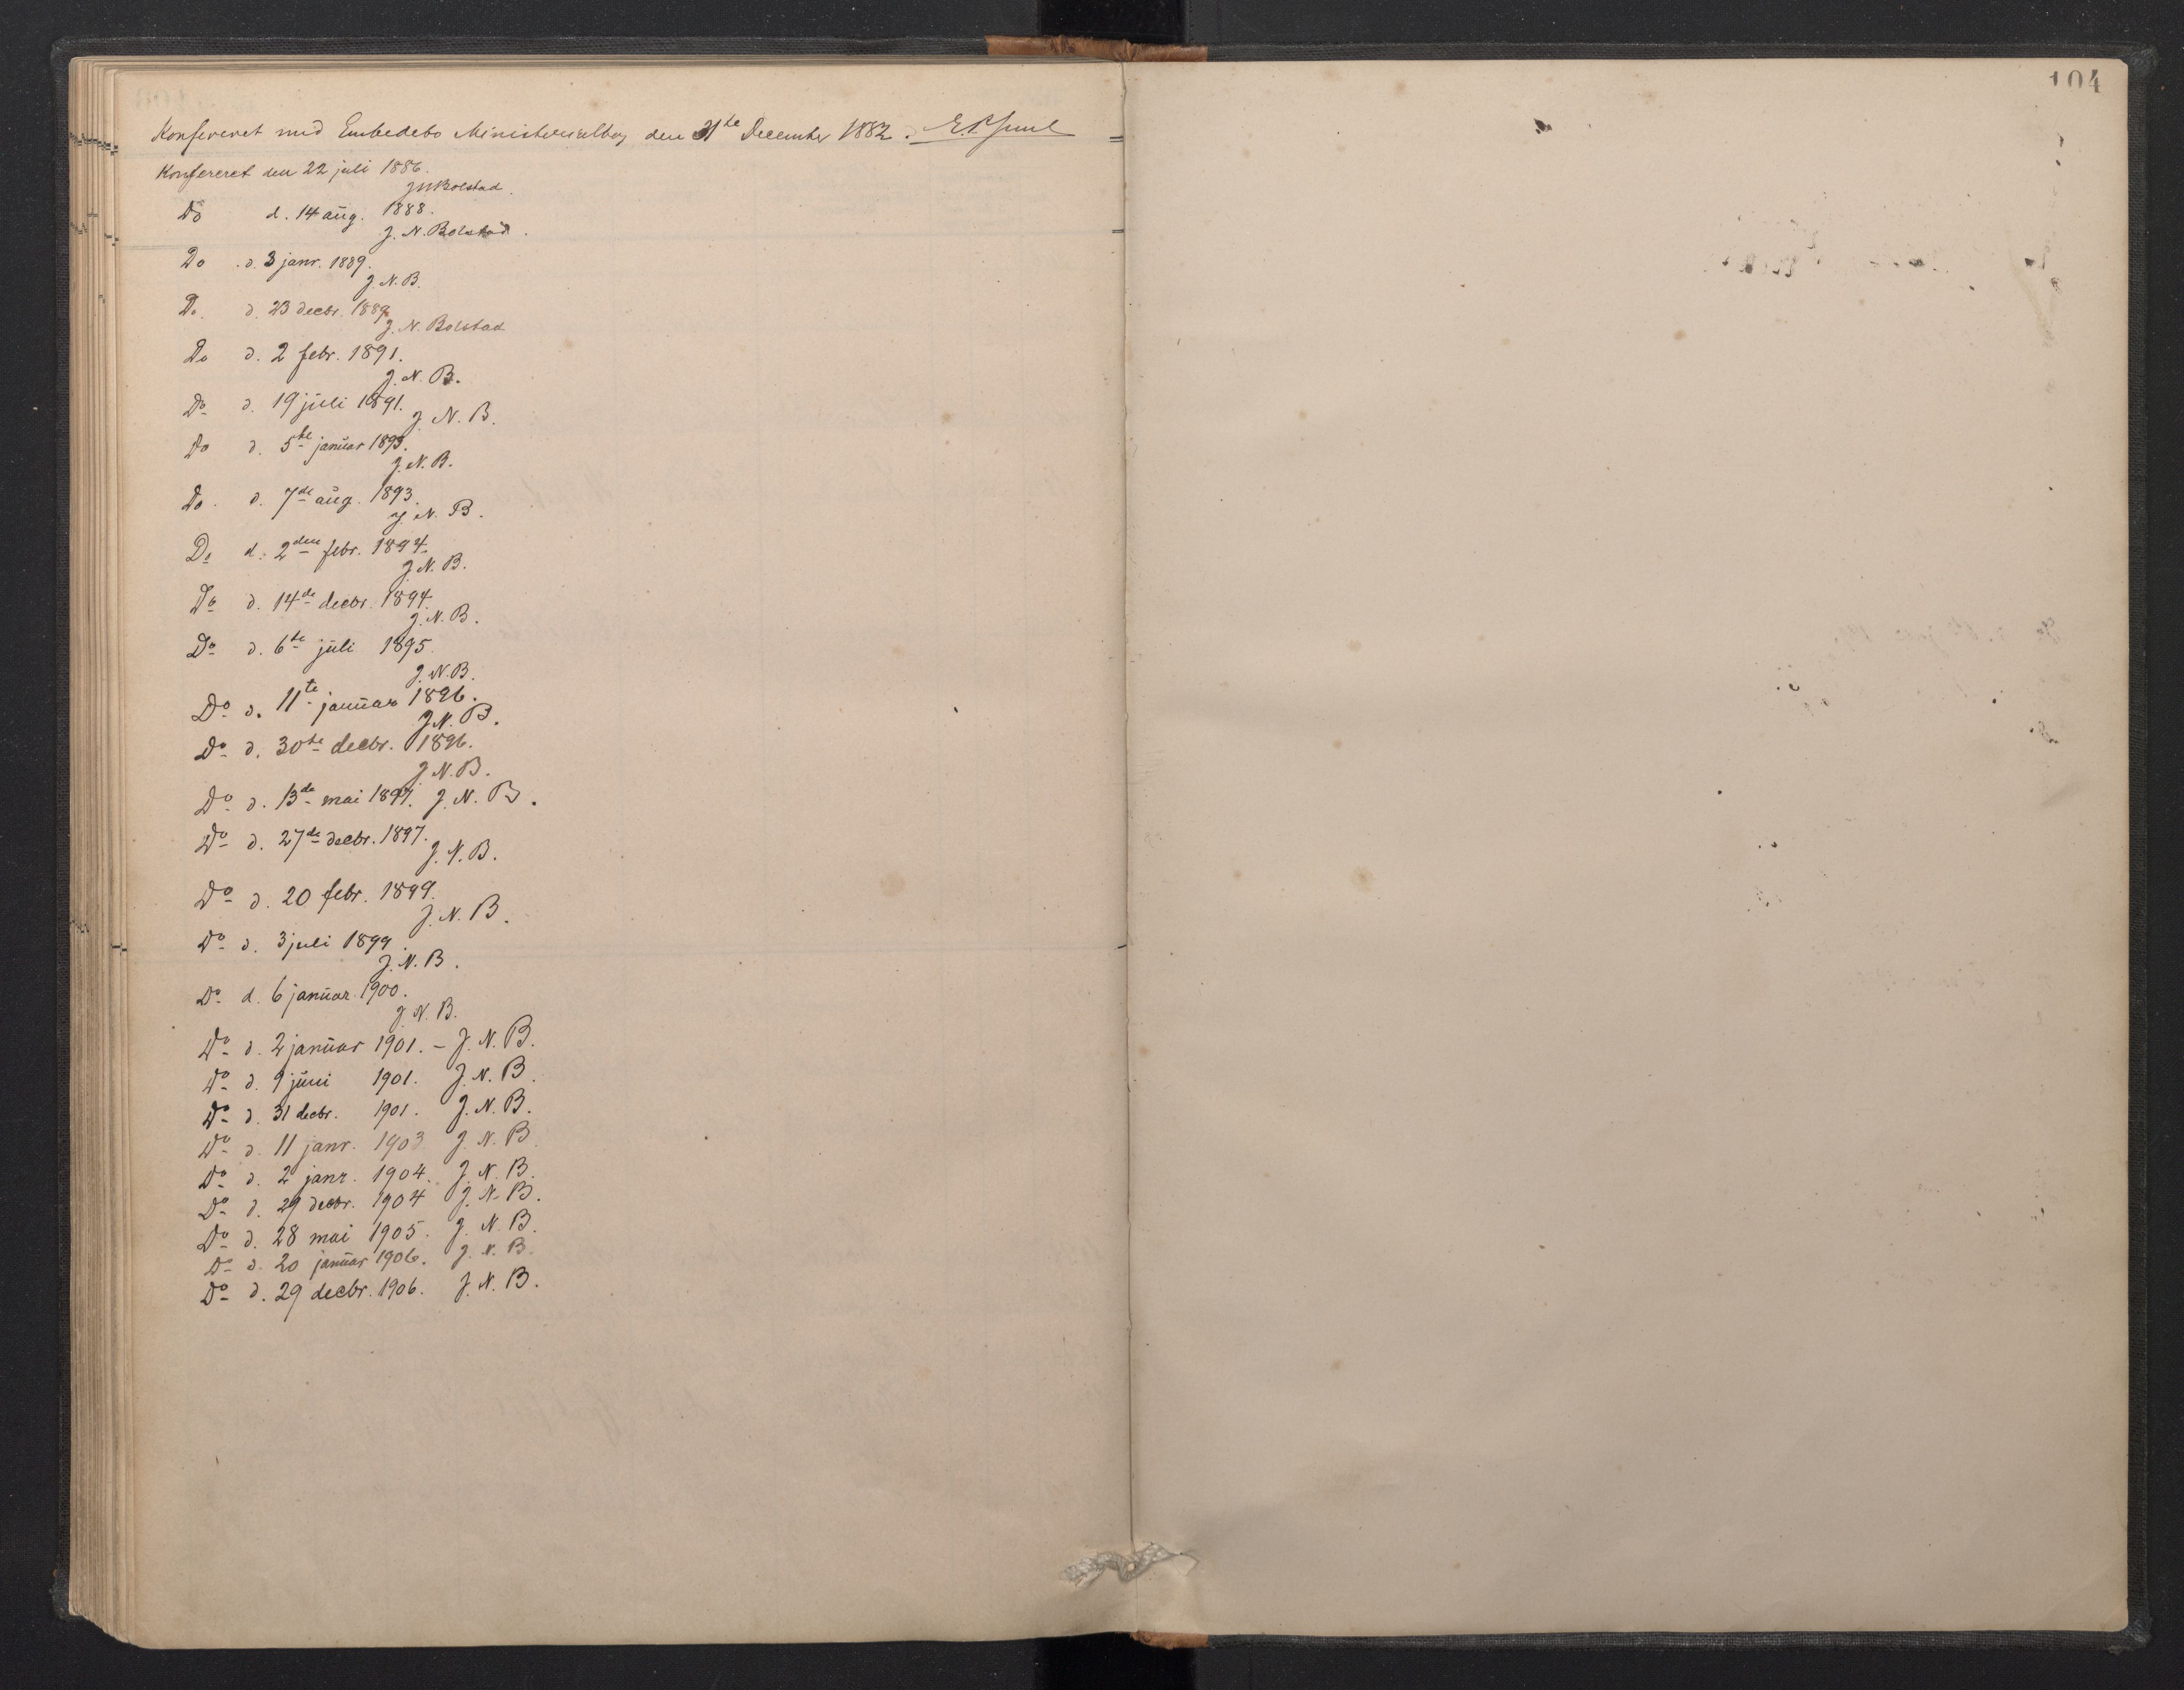 104
Konfereret med Embedets Ministerialbog den 31te December 1882. E. P. Juul
Konfereret den 22 juli 1886.
J N Bolstad.
Do d. 14 aug. 1888.
J. N. Bolstad.
Do d. 3 janr. 1889.
J. N. B.
Do. d. 23 decbr. 1889
J. N. Bolstad
Do d. 2 febr. 1891.
J. N. B.
Do d. 19 juli 1891. J. N. B.
Do d. 5te januar 1893.
J. N. B.
Do. d. 7de aug. 1893
J. N. B.
Do d. 2den febr. 1894.
J. N. B.
Do d. 14de decbr. 1894.
J. N. B.
Do d. 6te juli 1895.
J. N. B.
Do d. 11te januar 1896.
J. N. B.
Do d. 30te decbr. 1896.
J. N. B.
Do d. 13de mai 1897. J. N. B.
Do d. 27de decbr. 1897.
J. N. B.
Do d. 20 febr. 1899.
J. N. B.
Do d. 3 juli 1899
J. N. B.
Do d. 6 januar 1900.
J. N. B.
Do d. 2 januar 1901. – J. N. B.
Do d. 9 juni 1901. J. N. B.
Do d. 31 decbr. 1901. J. N. B.
Do d. 11 janr. 1903 J. N. B
Do d. 2 janr. 1904. J. N. B.
Do d. 29 decbr. 1904 J. N. B.
Do d. 28 mai 1905. J. N. B.
Do d. 20 januar 1906. J. N. B.
Do d. 29 decbr. 1906. J. N. B.